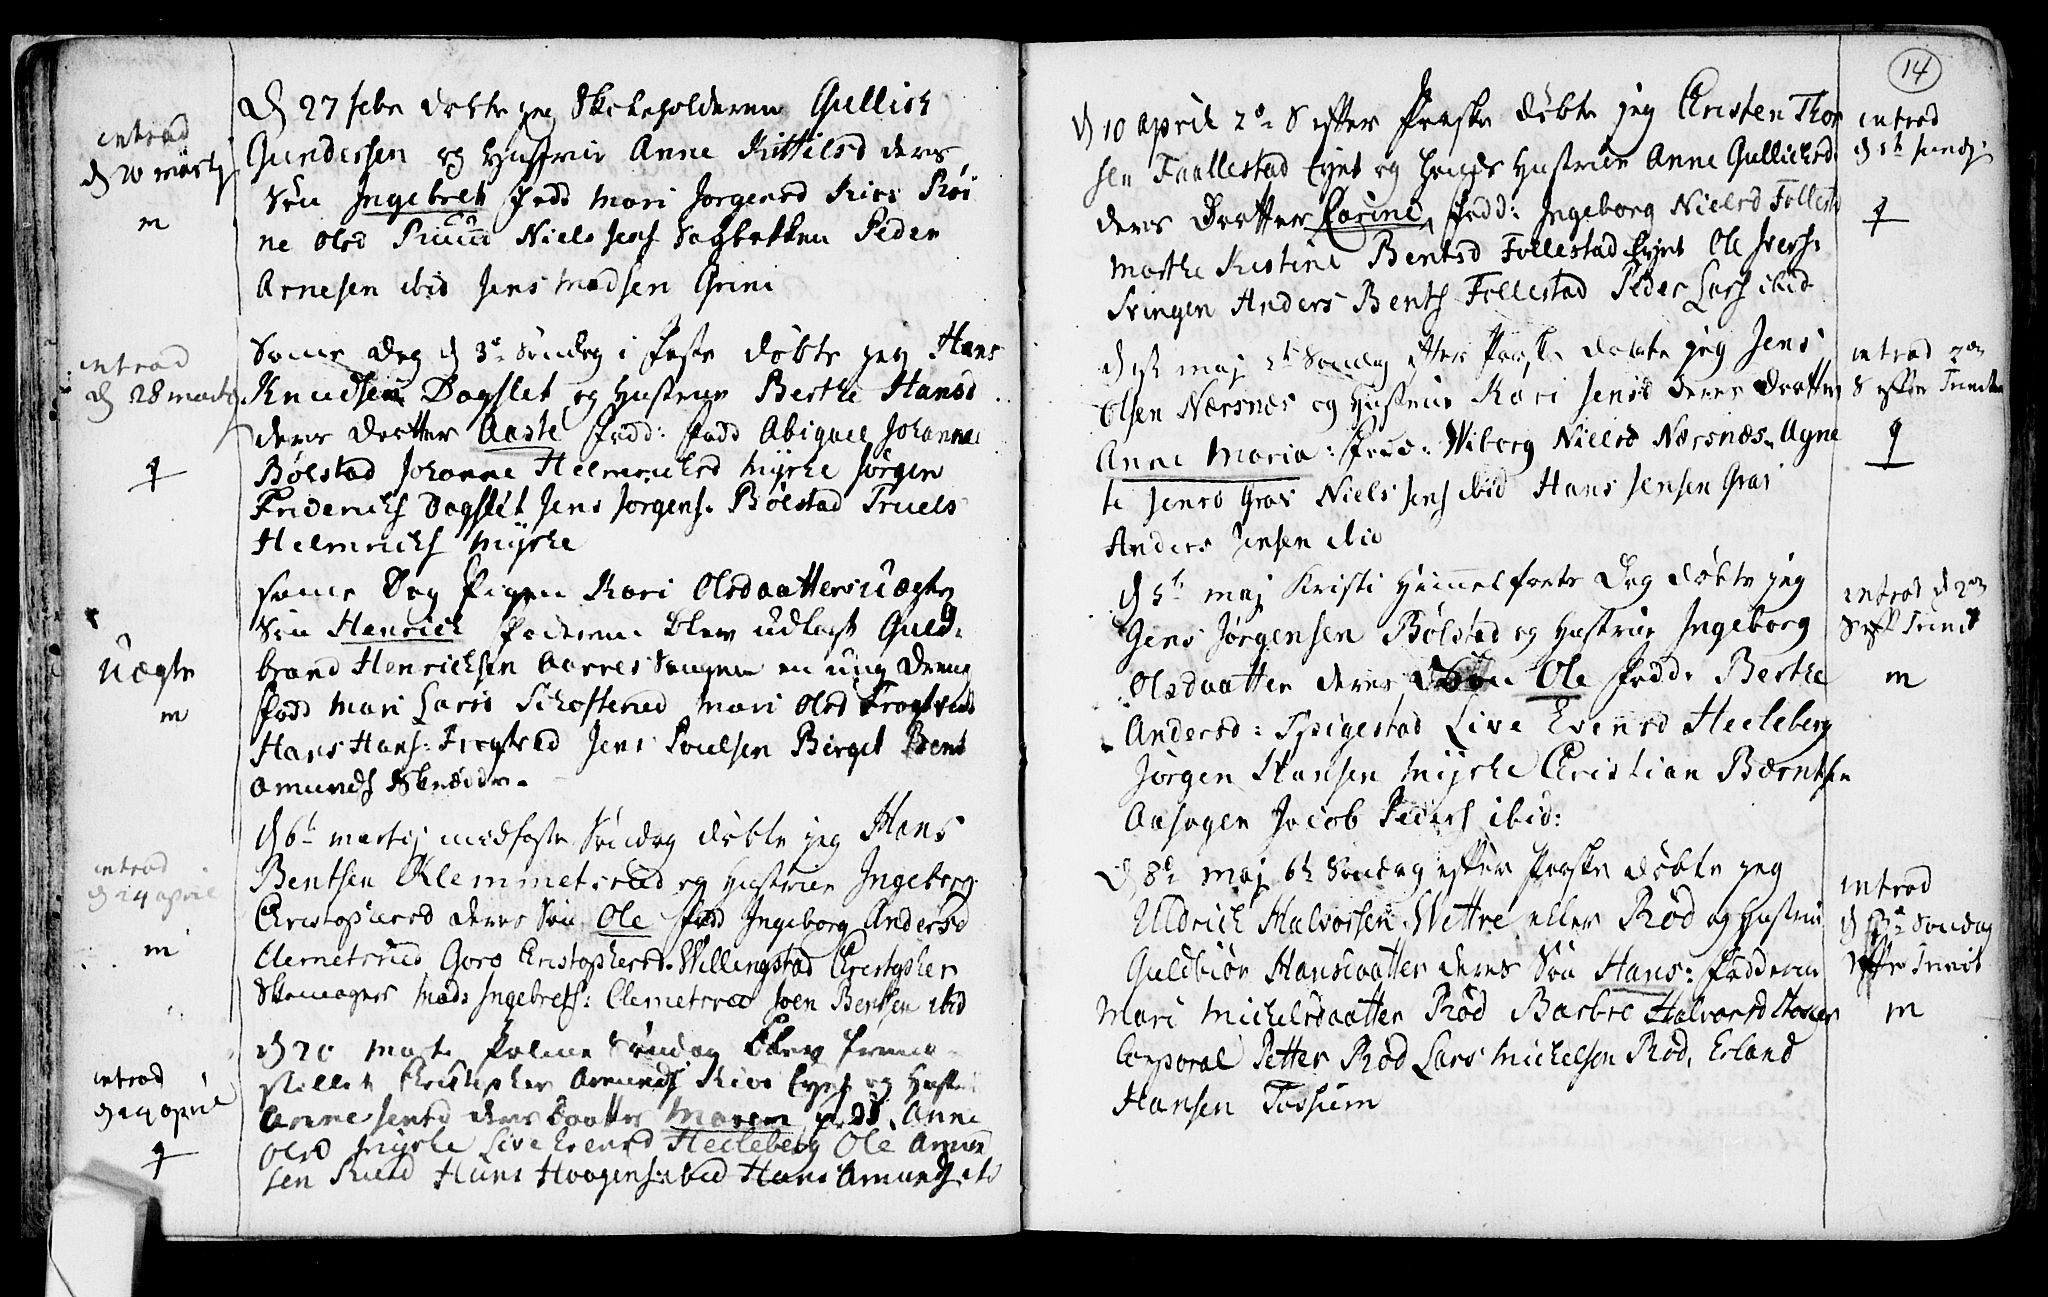 intrad
d 20 martij
m
D 27 febr døbte jeg Skoleholderen Gullich
Gundersen og Hustrue Anne Kittilsd deres
Søn Ingebret fadd Mari Jorgensd Kios Kri
ne Olsd Ruud Niels Jens Sagbakken Peder
Arnesen ibid Jens Madsen Grini
intrad
d 28 marti
Same Dag d 3 Søndag i Faste døbte jeg Hans
Knudsen Dagslet og Hustrue Berthe Hansd
deres Datter Aaste fadd: Abigael Johanne
Bølstad Johanne Helmrichsd Myhre Jørgen
Friderichs Dagslet Jens Jørgens. Bølstad Truels
Helmrichs Myhre
Uægte
m
Same Dag Pigen Kari Olsdaatters Uægte
Søn Henrich Faderen blev udlagt Guld-
brand Henrichsen Aarres Saugen en ung Dreng
fadd Mari Larsd Schofterud Mari Olsd Frogtved
Hans Hans: Frogtved Jens Poulsen Berget Bent
Amunds Skrædder.
intrad
d 24 april
m
D 6 martij midfaste Søndag døbte jeg Hans
Bentsen Klemmetsrud og Hustrue Ingeborg
Christophersd deres Søn Ole fadd Ingeborg Andersd
Clemetsrud Goro Christophersd. Willingstad Christopher
Skomager Mads Ingebrets: Clemetsrud Joen Bentsen ibid
intrad
d 24 april
d 20 Marti Palme Søndag blev frem-
stillet Christopher Amunds Kios Eyet og Hustrue
Anne Jensd deres Daatter Maren fadd. Anne
Olsd Myhre Live Evensd Hecleberg Ole Amund
sen Ruud Hans Haagens: ibid Hans Amunds ibid
14
D 10 april 2 S efter Paaske døbte jeg Christen Thor
sen Faallestad Eyet og hands Hustrue Anne Gullichsd
deres Daatter Karine, fadd: Ingeborg Nielsd Follestd
Marthe Kirstine Bentsd Follestad Eyet Ole Ivers:
Svingen Anders Bents Follestad Peder Lars ibid
intrad
d 5 sundg:
D 1 maj 5 Søndag efter Paaske døbte jeg Jens
Olsen Nærsnæs og Hustrue Kari Jensd deres Daatter
Anne Maria: fadd: Wiborg Nielsd Nærsnæs. Agne
te Jensd Graa Niels Jens ibid Hans Jensen Graa
Anders Jensen ibid
intrad 2
S efter Trinit
D 5 maj Kristi Himmelfarts Dag døbte jeg
Jens Jørgensen Bølstad og Hustrue Ingeborg
Olsdaatter deres Søn Ole fadd. Berthe
Andersd: Spigestad Live Evensd Hecleberg
Jørgen Hansen Myhre Christian Berntsen
Aasagen Jacob Peders ibid:
intrad d 2
S eft Trinit
m
D 8 maj 6 Søndag efter Paaske døbte jeg
Uldrich Halvorsen Wettre eller Rød og Hustrue
Guldbiør Hansdaatter deres Søn Hans: fadderne
Mari Michelsdaatter Rød Barbro Halvorsd
Corporal Petter Rød Lars Michelsen Rød, Erland
Hansen Tossum
intrad
d 3 Søndag
efter Trinit
m